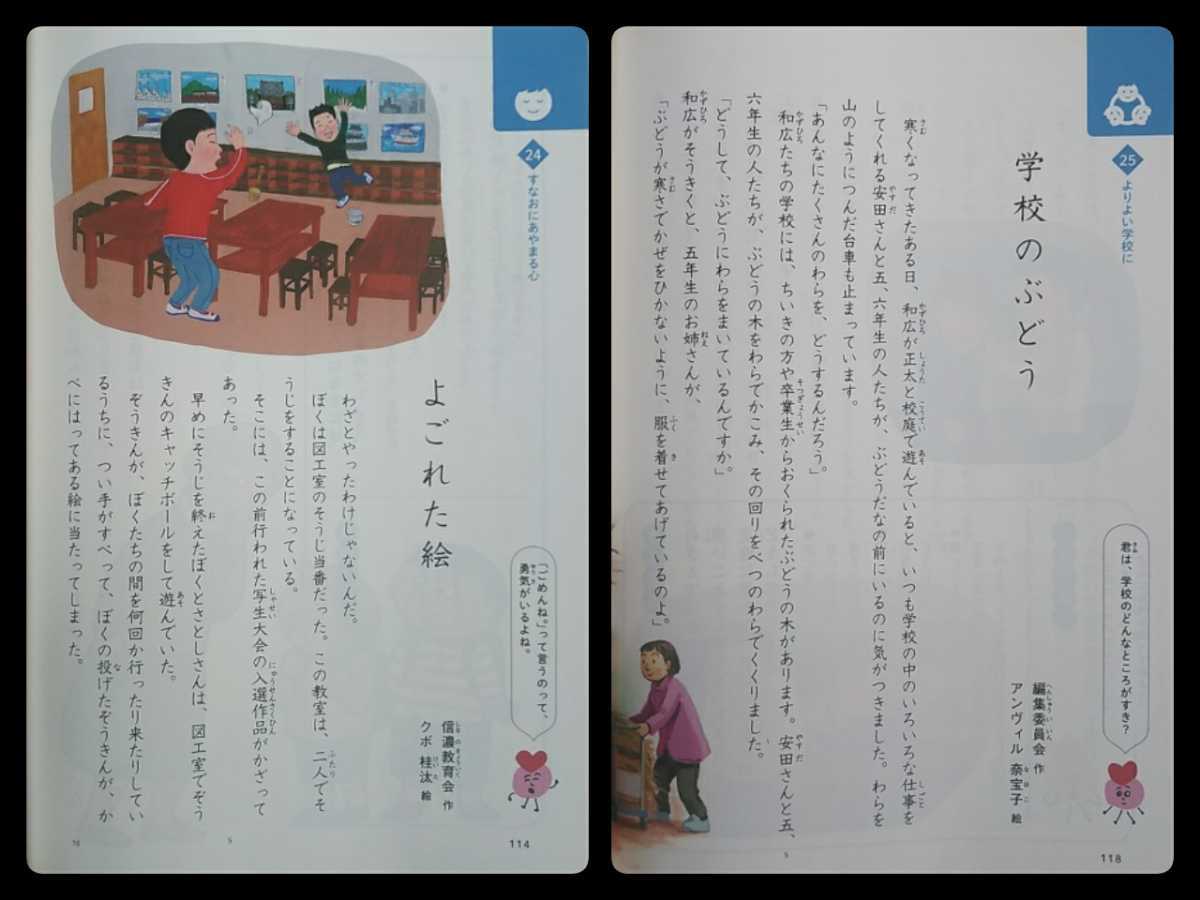 24
すなおにあやまる心
よごれた絵
「ごめんね。」って言うのって、
勇気がいるよね。
信濃教育会 作
クボ 桂汰 絵
わざとやったわけじゃないんだ。
ぼくは図工室のそうじ当番だった。この教室は、二人でそ
うじをすることになっている。
そこには、この前行われた写生大会の入選作品がかざって
あった。
早めにそうじを終えたぼくとさとしさんは、図工室でぞう
きんのキャッチボールをして遊んでいた。
ぞうきんが、ぼくたちの間を何回か行ったり来たりしてい
るうちに、つい手がすべって、ぼくの投げたぞうきんが、か
べにはってある絵に当たってしまった。
5
10
114
25
よりよい学校に
学校のぶどう
君は、学校のどんなところがすき?
編集委員会 作
アンヴィル 奈宝子 絵
寒くなってきたある日、和広が正太と校庭で遊んでいると、いつも学校の中のいろいろな仕事を
してくれる安田さんと五、六年生の人たちが、ぶどうだなの前にいるのに気がつきました。わらを
山のようにつんだ台車も止まっています。
「あんなにたくさんのわらを、どうするんだろう」
和広たちの学校には、ちいきの方や卒業生からおくられたぶどうの木があります。安田さんと五、
六年生の人たちが、ぶどうの木をわらでかこみ、その回りをべつのわらでくくりました。
「どうして、ぶどうにわらをまいているんですか。」
和広がそうきくと、五年生のお姉さんが、
「ぶどうが寒さでかぜをひかないように、服を着せてあげているのよ。」
5
118